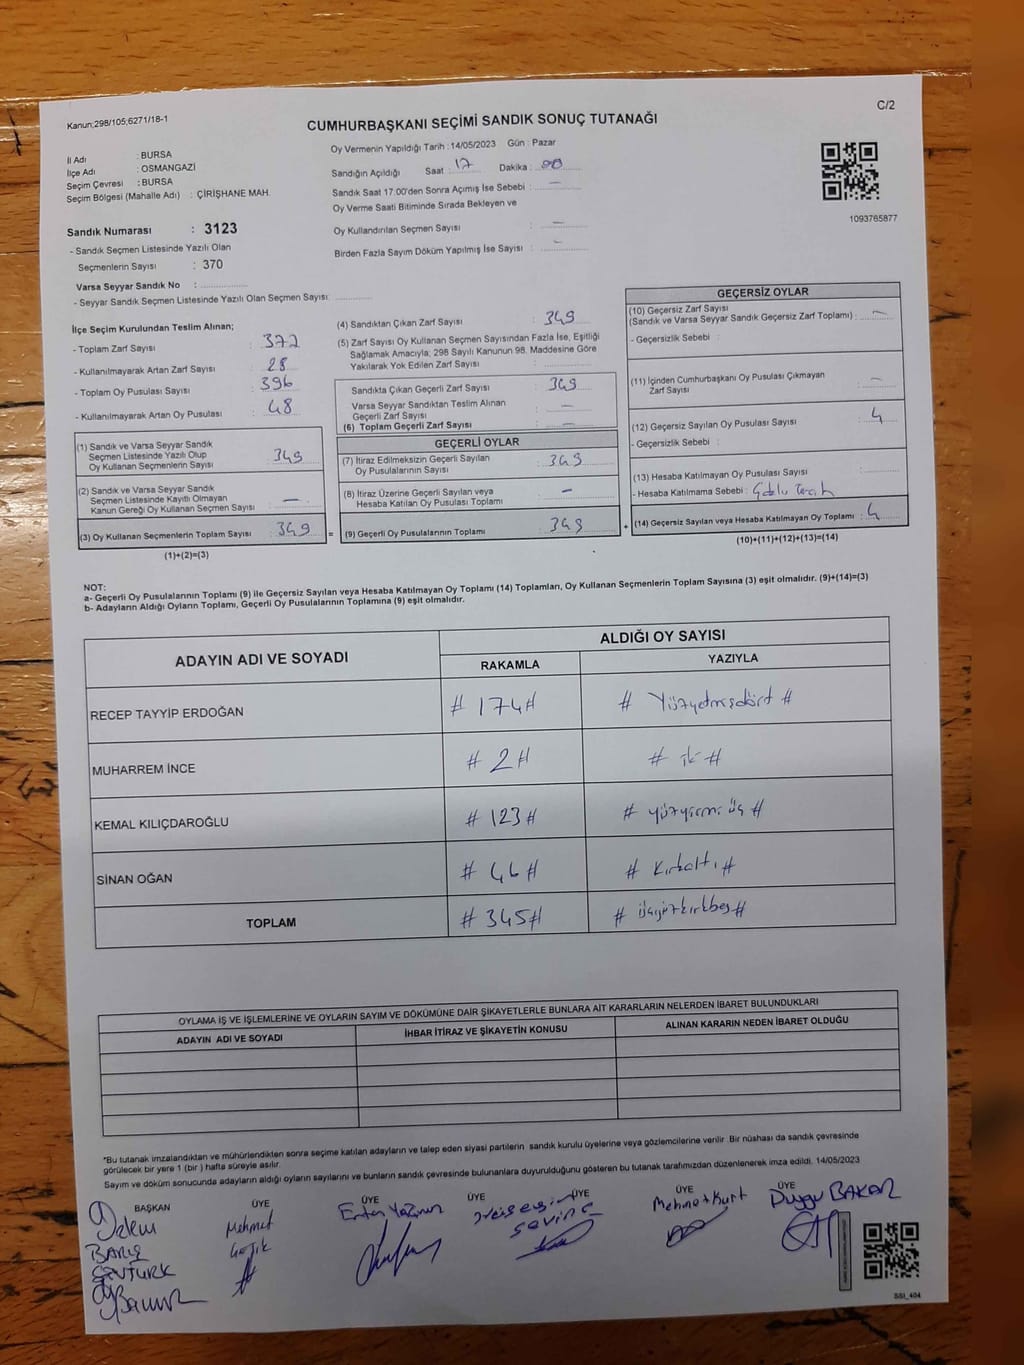 Kanun;298/105;6271/18-1
C/2
CUMHURBAŞKANI SEÇİMİ SANDIK SONUÇ TUTANAĞI
Oy Vermenin Yapıldığı Tarih : 14/05/2023 Gün : Pazar
İl Adı : BURSA
İlçe Adı : OSMANGAZİ
Seçim Çevresi : BURSA
Seçim Bölgesi (Mahalle Adı) : ÇİRİŞHANE MAH.
Sandığın Açıldığı Saat : 17 Dakika : 00
Sandık Saat 17.00'den Sonra Açımış İse Sebebi : —
Oy Verme Saati Bitiminde Sırada Bekleyen ve
Oy Kullandırılan Seçmen Sayısı : —
Birden Fazla Sayım Döküm Yapılmış İse Sayısı : —
1093765877
Sandık Numarası : 3123
- Sandık Seçmen Listesinde Yazılı Olan
Seçmenlerin Sayısı : 370
Varsa Seyyar Sandık No :
- Seyyar Sandık Seçmen Listesinde Yazılı Olan Seçmen Sayısı:
İlçe Seçim Kurulundan Teslim Alınan;
- Toplam Zarf Sayısı : 377
- Kullanılmayarak Artan Zarf Sayısı : 28
- Toplam Oy Pusulası Sayısı : 396
- Kullanılmayarak Artan Oy Pusulası : 48
(1) Sandık ve Varsa Seyyar Sandık
Seçmen Listesinde Yazılı Olup
Oy Kullanan Seçmenlerin Sayısı : 349
(2) Sandık ve Varsa Seyyar Sandık
Seçmen Listesinde Kayıtlı Olmayan
Kanun Gereği Oy Kullanan Seçmen Sayısı : —
(3) Oy Kullanan Seçmenlerin Toplam Sayısı : 349 =
(1)+(2)=(3)
(4) Sandıktan Çıkan Zarf Sayısı : 349
(5) Zarf Sayısı Oy Kullanan Seçmen Sayısından Fazla İse, Eşitliği
Sağlamak Amacıyla; 298 Sayılı Kanunun 98. Maddesine Göre
Yakılarak Yok Edilen Zarf Sayısı :
Sandıkta Çıkan Geçerli Zarf Sayısı : 349
Varsa Seyyar Sandıktan Teslim Alınan
Geçerli Zarf Sayısı : —
(6) Toplam Geçerli Zarf Sayısı : —
GEÇERLİ OYLAR
(7) İtiraz Edilmeksizin Geçerli Sayılan
Oy Pusulalarının Sayısı : 349
(8) İtiraz Üzerine Geçerli Sayılan veya
Hesaba Katılan Oy Pusulası Toplamı : —
(9) Geçerli Oy Pusulalarının Toplamı : 349 +
GEÇERSİZ OYLAR
(10) Geçersiz Zarf Sayısı
(Sandık ve Varsa Seyyar Sandık Geçersiz Zarf Toplamı) : —
- Geçersizlik Sebebi :
(11) İçinden Cumhurbaşkanı Oy Pusulası Çıkmayan
Zarf Sayısı : —
(12) Geçersiz Sayılan Oy Pusulası Sayısı : 4
- Geçersizlik Sebebi :
(13) Hesaba Katılmayan Oy Pusulası Sayısı :
- Hesaba Katılmama Sebebi :
(14) Geçersiz Sayılan veya Hesaba Katılmayan Oy Toplamı : 4
(10)+(11)+(12)+(13)=(14)
NOT:
a- Geçerli Oy Pusulalarının Toplamı (9) ile Geçersiz Sayılan veya Hesaba Katılmayan Oy Toplamı (14) Toplamları, Oy Kullanan Seçmenlerin Toplam Sayısına (3) eşit olmalıdır. (9)+(14)=(3)
b- Adayların Aldığı Oyların Toplamı, Geçerli Oy Pusulalarının Toplamına (9) eşit olmalıdır.
ADAYIN ADI VE SOYADI ALDIĞI OY SAYISI
RAKAMLA YAZIYLA
RECEP TAYYİP ERDOĞAN # 174# # Yüzyetmişdört #
MUHARREM İNCE # 2# # iki #
KEMAL KILIÇDAROĞLU # 123# # yüzyirmi üç #
SİNAN OĞAN # 46# # Kırkaltı #
TOPLAM # 345# # üçyüzkırkbeş#
OYLAMA İŞ VE İŞLEMLERİNE VE OYLARIN SAYIM VE DÖKÜMÜNE DAİR ŞİKAYETLERLE BUNLARA AİT KARARLARIN NELERDEN İBARET BULUNDUKLARI
ADAYIN ADI VE SOYADI İHBAR İTİRAZ VE ŞİKAYETİN KONUSU ALINAN KARARIN NEDEN İBARET OLDUĞU
*Bu tutanak imzalandıktan ve mühürlendikten sonra seçime katılan adayların ve talep eden siyasi partilerin sandık kurulu üyelerine veya gözlemcilerine verilir. Bir nüshası da sandık çevresinde
görülecek bir yere 1 (bir ) hafta süreyle asılır.
Sayım ve döküm sonucunda adayların aldığı oyların sayılarını ve bunların sandık çevresinde bulunanlara duyurulduğunu gösteren bu tutanak tarafımızdan düzenlenerek imza edildi. 14/05/2023
BAŞKAN ÜYE ÜYE ÜYE ÜYE ÜYE ÜYE
Özlem
BARIŞ
ŞENTÜRK
Mehmet
Sevinç
Mehmet Kurt
Duygu BAKAR
SSI_404